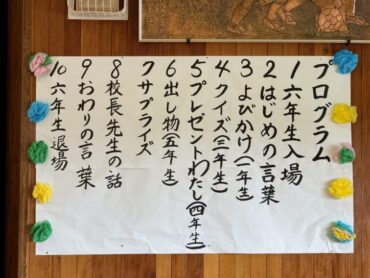 プログラム
1 六年生入場
2 はじめの言葉
3 よびかけ(一年生)
4 クイズ(三年生)
5 プレゼントわたし(四年生)
6 出し物(五年生)
7 サプライズ
8 校長先生の話
9 おわりの言葉
10 六年生退場